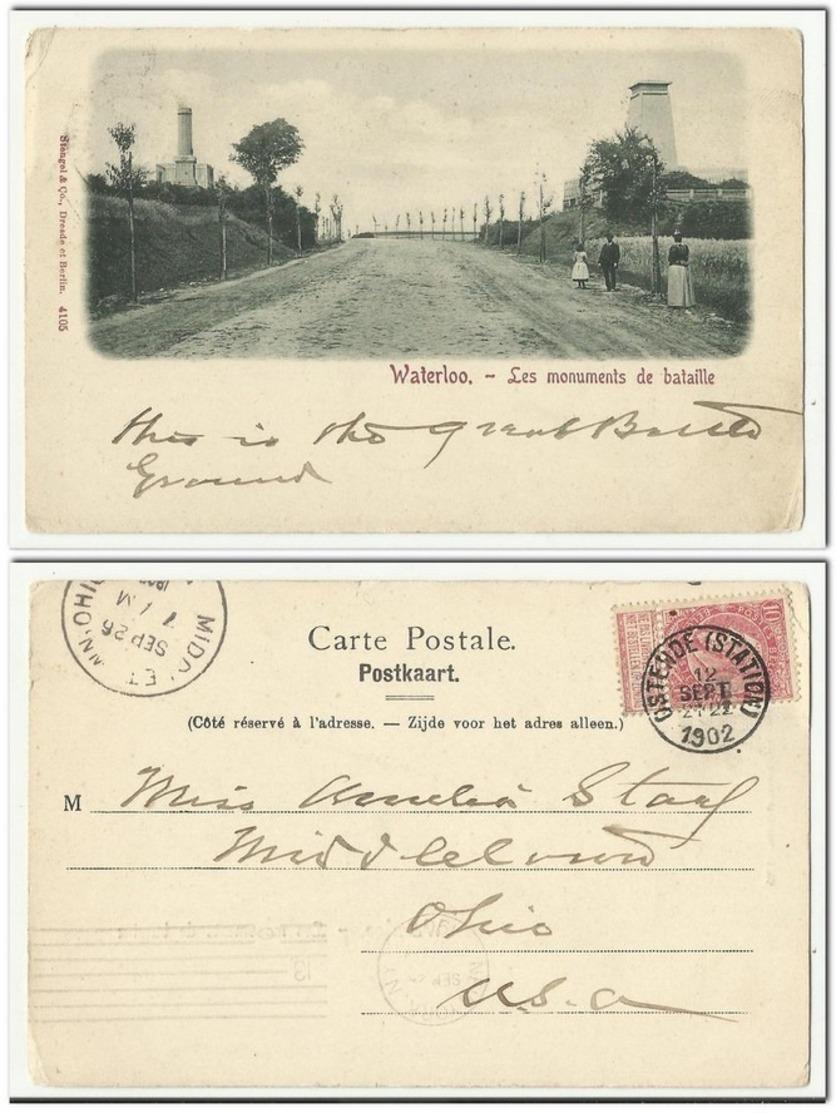 Stengel & Co., Dresde et Berlin. 4105
Waterloo. - Les monuments de bataille
this is the great Battle
Ground
MIDDLET WN, OHIO
SEP 26
1 M
Carte Postale.
Postkaart.
(Côté réservé à l'adresse. — Zijde voor het adres alleen.)
10
OSTENDE (STATION)
12
SEPT
21-22
1902
M Miss Amelia Staaf
Middletown
Ohio
U.S.A